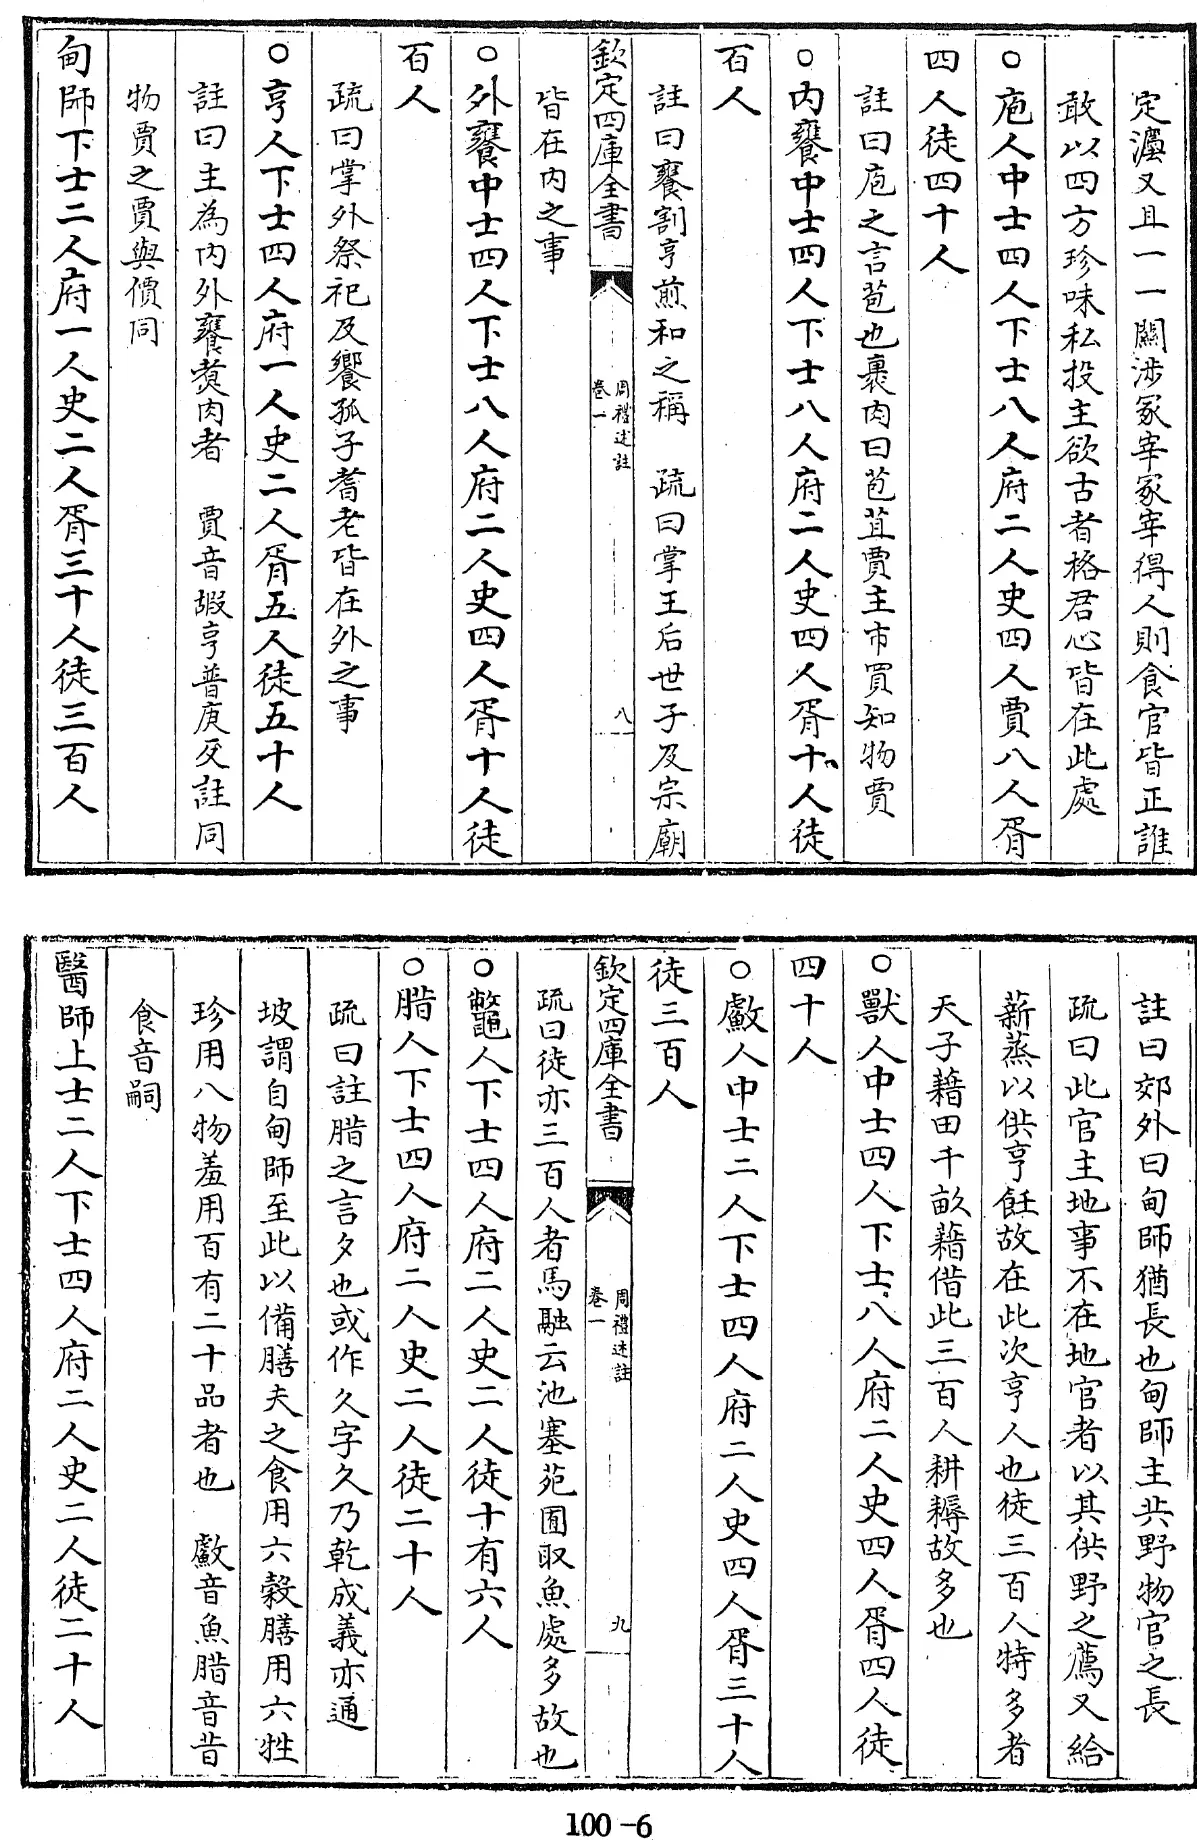 定灋又且一一關涉冢宰冢宰得人則食官皆正誰
敢以四方珍味私投主欲古者格君心皆在此處
○庖人中士四人下士八人府二人史四人賈八人胥
四人徒四十人
註曰庖之言苞也裹肉曰苞苴賈主市買知物賈
○内饔中士四人下士八人府二人史四人胥十人徒
百人
註曰饔割亨煎和之稱 疏曰掌王后世子及宗廟
皆在内之事
欽定四庫全書
周禮述註
卷一
八
○外饔中士四人下士八人府二人史四人胥十人徒
百人
疏曰掌外祭祀及饗孤子耆老皆在外之事
○亨人下士四人府一人史二人胥五人徒五十人
註曰主為内外饔煑肉者 賈音嘏亨普庚反註同
物賈之賈與價同
甸師下士二人府一人史二人胥三十人徒三百人
註曰郊外曰甸師猶長也甸師主共野物官之長
疏曰此官主地事不在地官者以其供野之薦又給
薪蒸以供亨飪故在此次亨人也徒三百人特多者
天子藉田千畝藉借此三百人耕耨故多也
○獸人中士四人下士八人府二人史四人胥四人徒
四十人
○䱷人中士二人下士四人府二人史四人胥三十人
徒三百人
欽定四庫全書
周禮述註
卷一
九
疏曰徒亦三百人者馬融云池塞苑囿取魚處多故也
○鼈人下士四人府二人史二人徒十有六人
○腊人下士四人府二人史二人徒二十人
疏曰註腊之言夕也或作久字久乃乾成義亦通
坡謂自甸師至此以備膳夫之食用六穀膳用六牲
珍用八物羞用百有二十品者也 䱷音魚腊音昔
食音嗣
醫師上士二人下士四人府二人史二人徒二十人
100-6